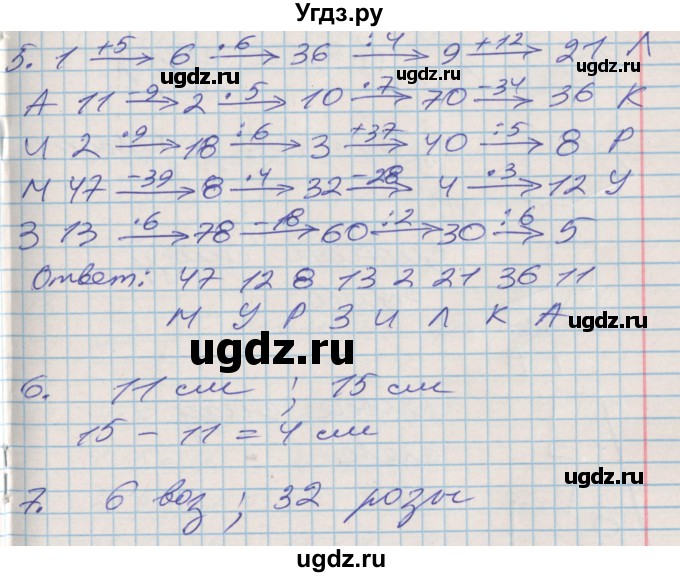 Угдз.ру
5. 1 +5→ 6 ·6→ 36 :4→ 9 +12→ 21 Л
ugdz.ru ugdz.ru
А 11 -9→ 2 ·5→ 10 ·7→ 70 -34→ 36 К
И 2 ·9→ 18 :6→ 3 +37→ 40 :5→ 8 Р
ugdz.ru ugdz.ru
М 47 -39→ 8 ·4→ 32 -28→ 4 ·3→ 12 У
З 13 ·6→ 78 -18→ 60 :2→ 30 :6→ 5
Ответ: 47 12 8 13 2 21 36 11
М У Р З И Л К А
ugdz.ru ugdz.ru
ugdz.ru
6. 11 см ; 15 см
15 - 11 = 4 см
ugdz.ru
7. 6 воз ; 32 розы
ugdz.ru
ugdz.ru